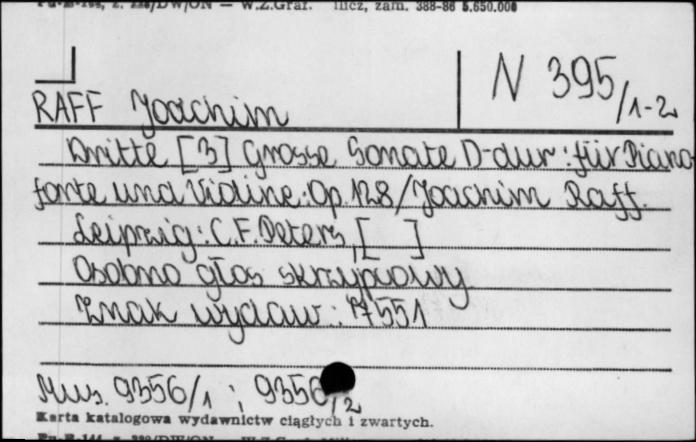 Pu-E-144, z. 238/DW/ON — W.Z.Graf. zam. 388-86 5.650.000
N 395/1-2
RAFF Joachim
Dritte [3] Grosse Sonate D-dur : für Piano-
forte und Violine : Op. 128 / Joachim Raff.
Leipzig : C.F. Peters, [ ]
Osobno głos skrzypcowy
Znak wydaw.: 7551
Mus. 9356/1 ; 9356/2
Karta katalogowa wydawnictw ciągłych i zwartych.
Pu-E-144, z. 238/DW/ON — W.Z.Graf.